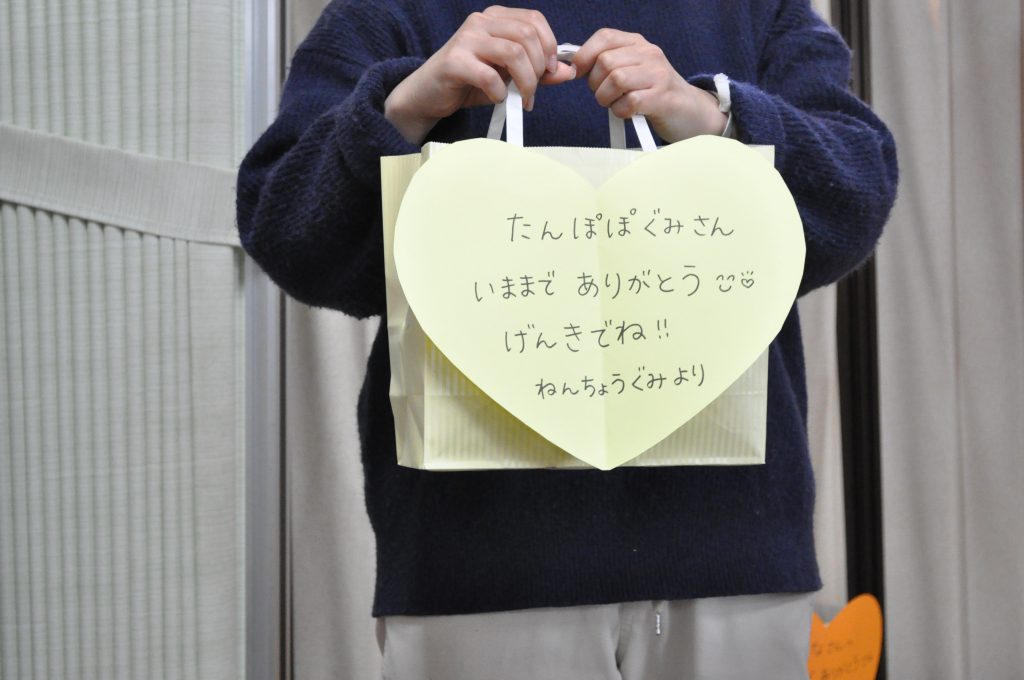 たんぽぽぐみさん
いままで ありがとう
げんきでね!!
ねんちょうぐみより